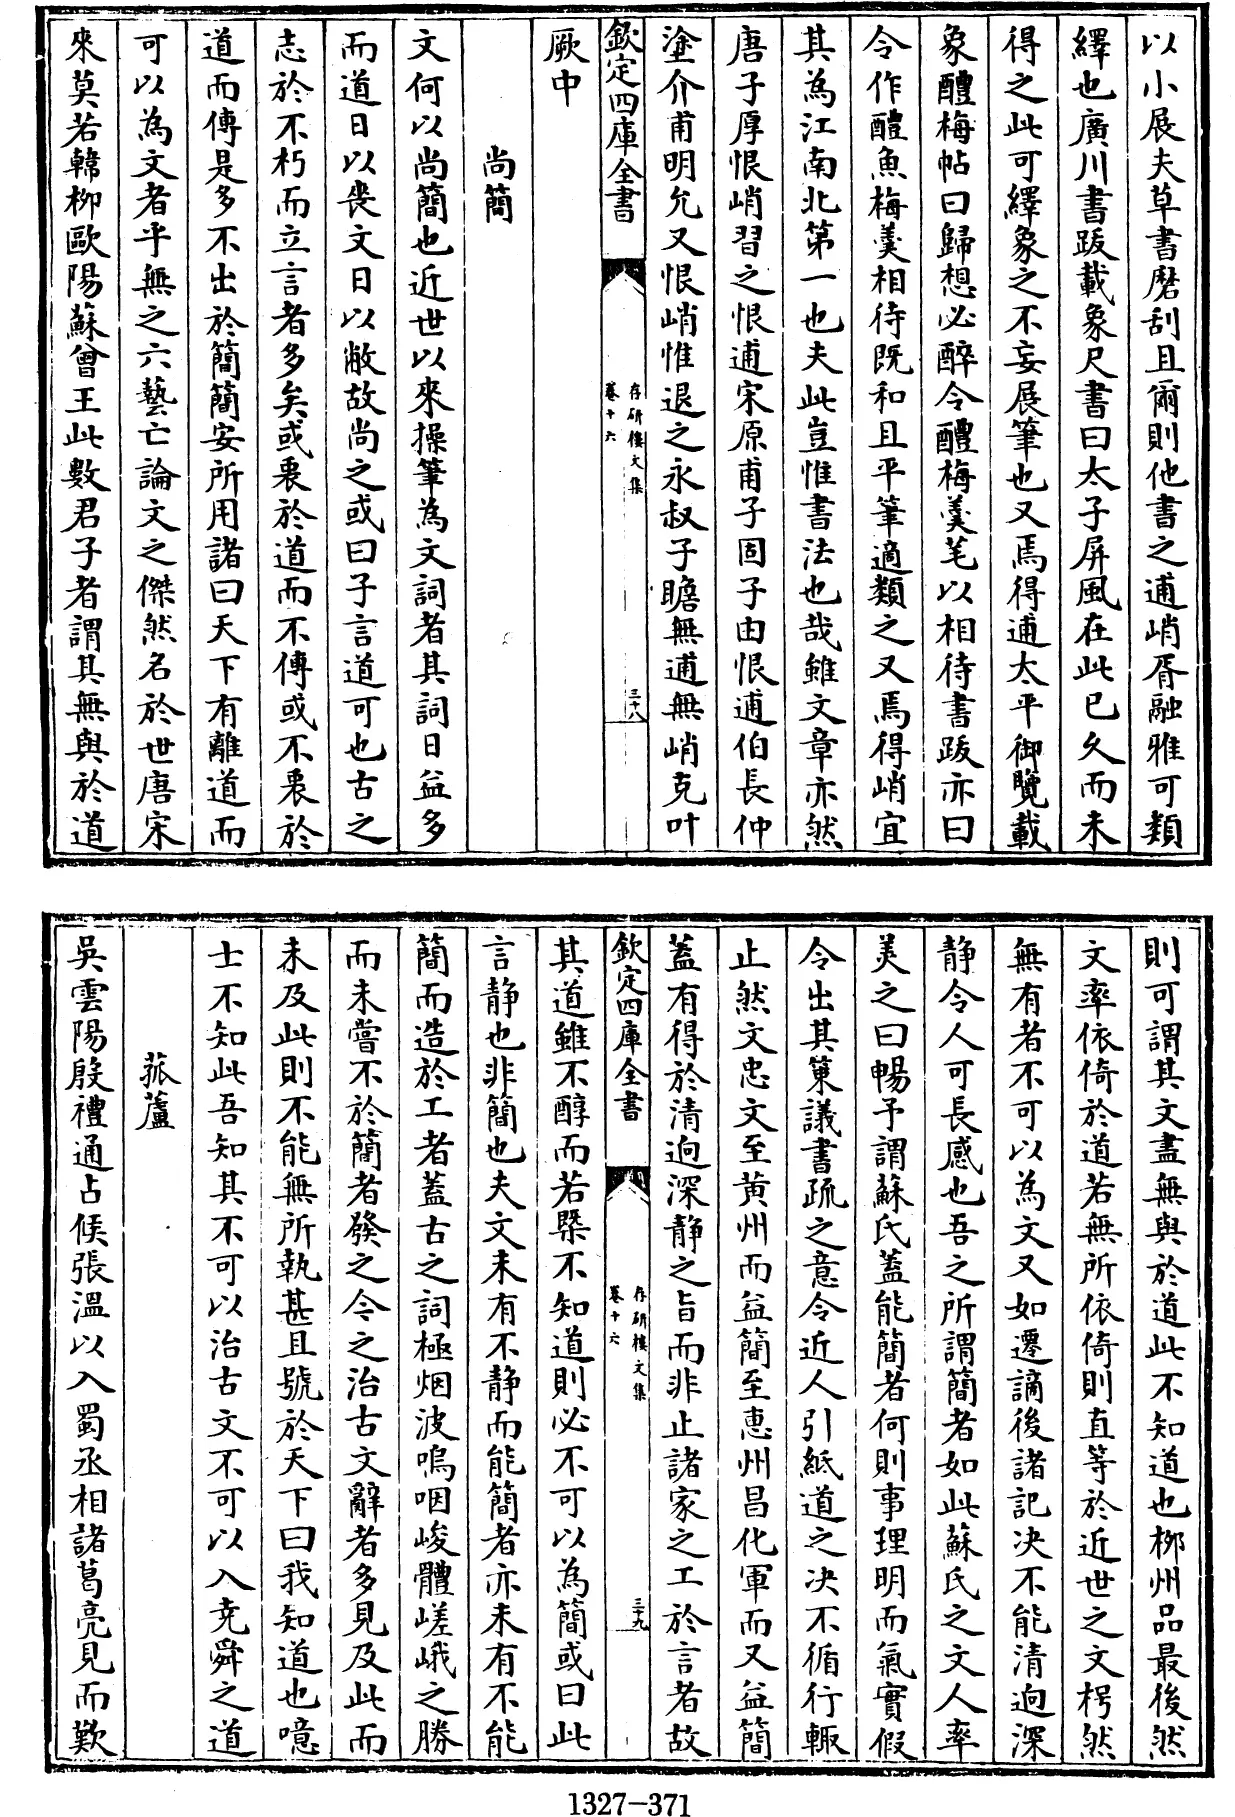 以小展夫草書磨刮且爾則他書之逋峭胥融雅可類
繹也廣川書跋載象尺書曰太子屏風在此已久而未
得之此可繹象之不妄展筆也又焉得逋太平御覽載
象醴梅帖曰歸想必醉令醴梅羹芼以相待書跋亦曰
令作醴魚梅羹相待既和且平筆適類之又焉得峭宜
其為江南北第一也夫此豈惟書法也哉雖文章亦然
唐子厚恨峭習之恨逋宋原甫子固子由恨逋伯長仲
塗介甫明允又恨峭惟退之永叔子瞻無逋無峭克叶
欽定四庫全書
存研樓文集
卷十六
三十八
厥中
尚簡
文何以尚簡也近世以來操筆為文詞者其詞日益多
而道日以喪文日以敝故尚之或曰子言道可也古之
志於不朽而立言者多矣或衷於道而不傳或不衷於
道而傳是多不出於簡簡安所用諸曰天下有離道而
可以為文者乎無之六藝亡論文之傑然名於世唐宋
來莫若韓柳歐陽蘇曾王此數君子者謂其無與於道
則可謂其文盡無與於道此不知道也柳州品最後然
文率依倚於道若無所依倚則直等於近世之文枵然
無有者不可以為文又如遷謫後諸記决不能清迥深
靜令人可長感也吾之所謂簡者如此蘇氏之文人率
美之曰暢予謂蘇氏蓋能簡者何則事理明而氣實假
令出其策議書疏之意令近人引紙道之决不循行輙
止然文忠文至黄州而益簡至惠州昌化軍而又益簡
蓋有得於清迥深靜之旨而非止諸家之工於言者故
欽定四庫全書
存研樓文集
卷十六
三十九
其道雖不醇而若槩不知道則必不可以為簡或曰此
言靜也非簡也夫文未有不靜而能簡者亦未有不能
簡而造於工者蓋古之詞極烟波嗚咽峻體嵯峨之勝
而未嘗不於簡者發之今之治古文辭者多見及此而
未及此則不能無所執甚且號於天下曰我知道也噫
士不知此吾知其不可以治古文不可以入堯舜之道
菰蘆
吳雲陽殷禮通占候張溫以入蜀丞相諸葛亮見而歎
1327-371